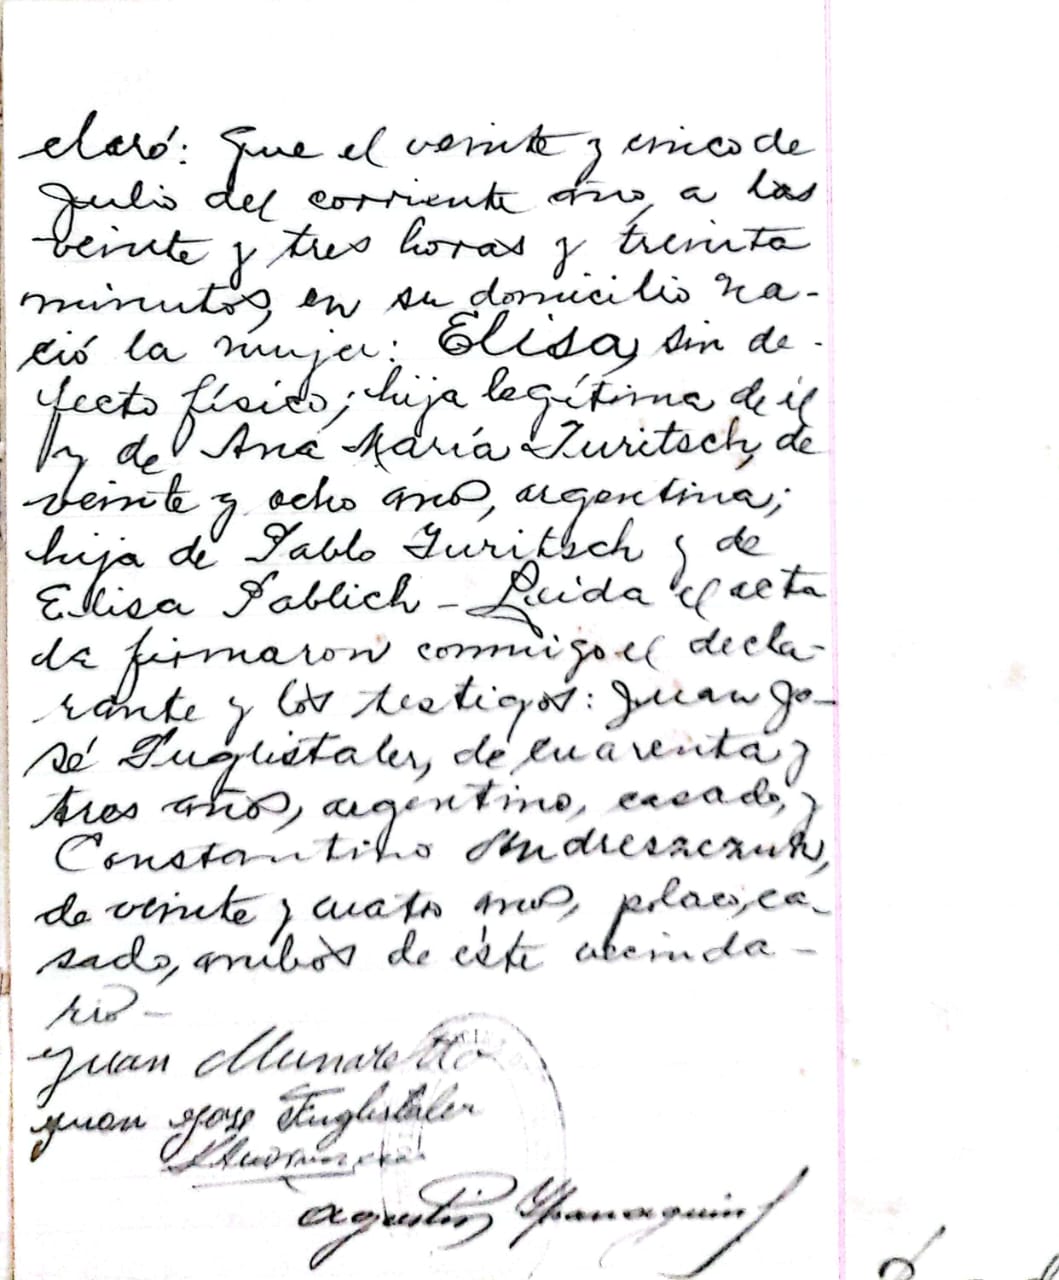 claró: Que el veinte y cinco de
Julio del corriente año, a las
veinte y tres horas y treinta
minutos, en su domicilio na-
ció la mujer: Elisa, sin de-
fecto físico; hija legítima de él
y de Ana María Turitsch, de
veinte y ocho años, argentina;
hija de Pablo Turitsch y de
Elisa Pablich - Leida el acta
la firmaron conmigo el decla-
rante y los testigos: Juan Jo-
sé Fuglistaler, de cuarenta y
tres años, argentino, casado, y
Constantino Andreszczuk,
de veinte y cuatro años, polaco, ca-
sado, ambos de éste vecinda-
rio -
Juan Munaretto
Juan Jose Fuglistaler
Agustin